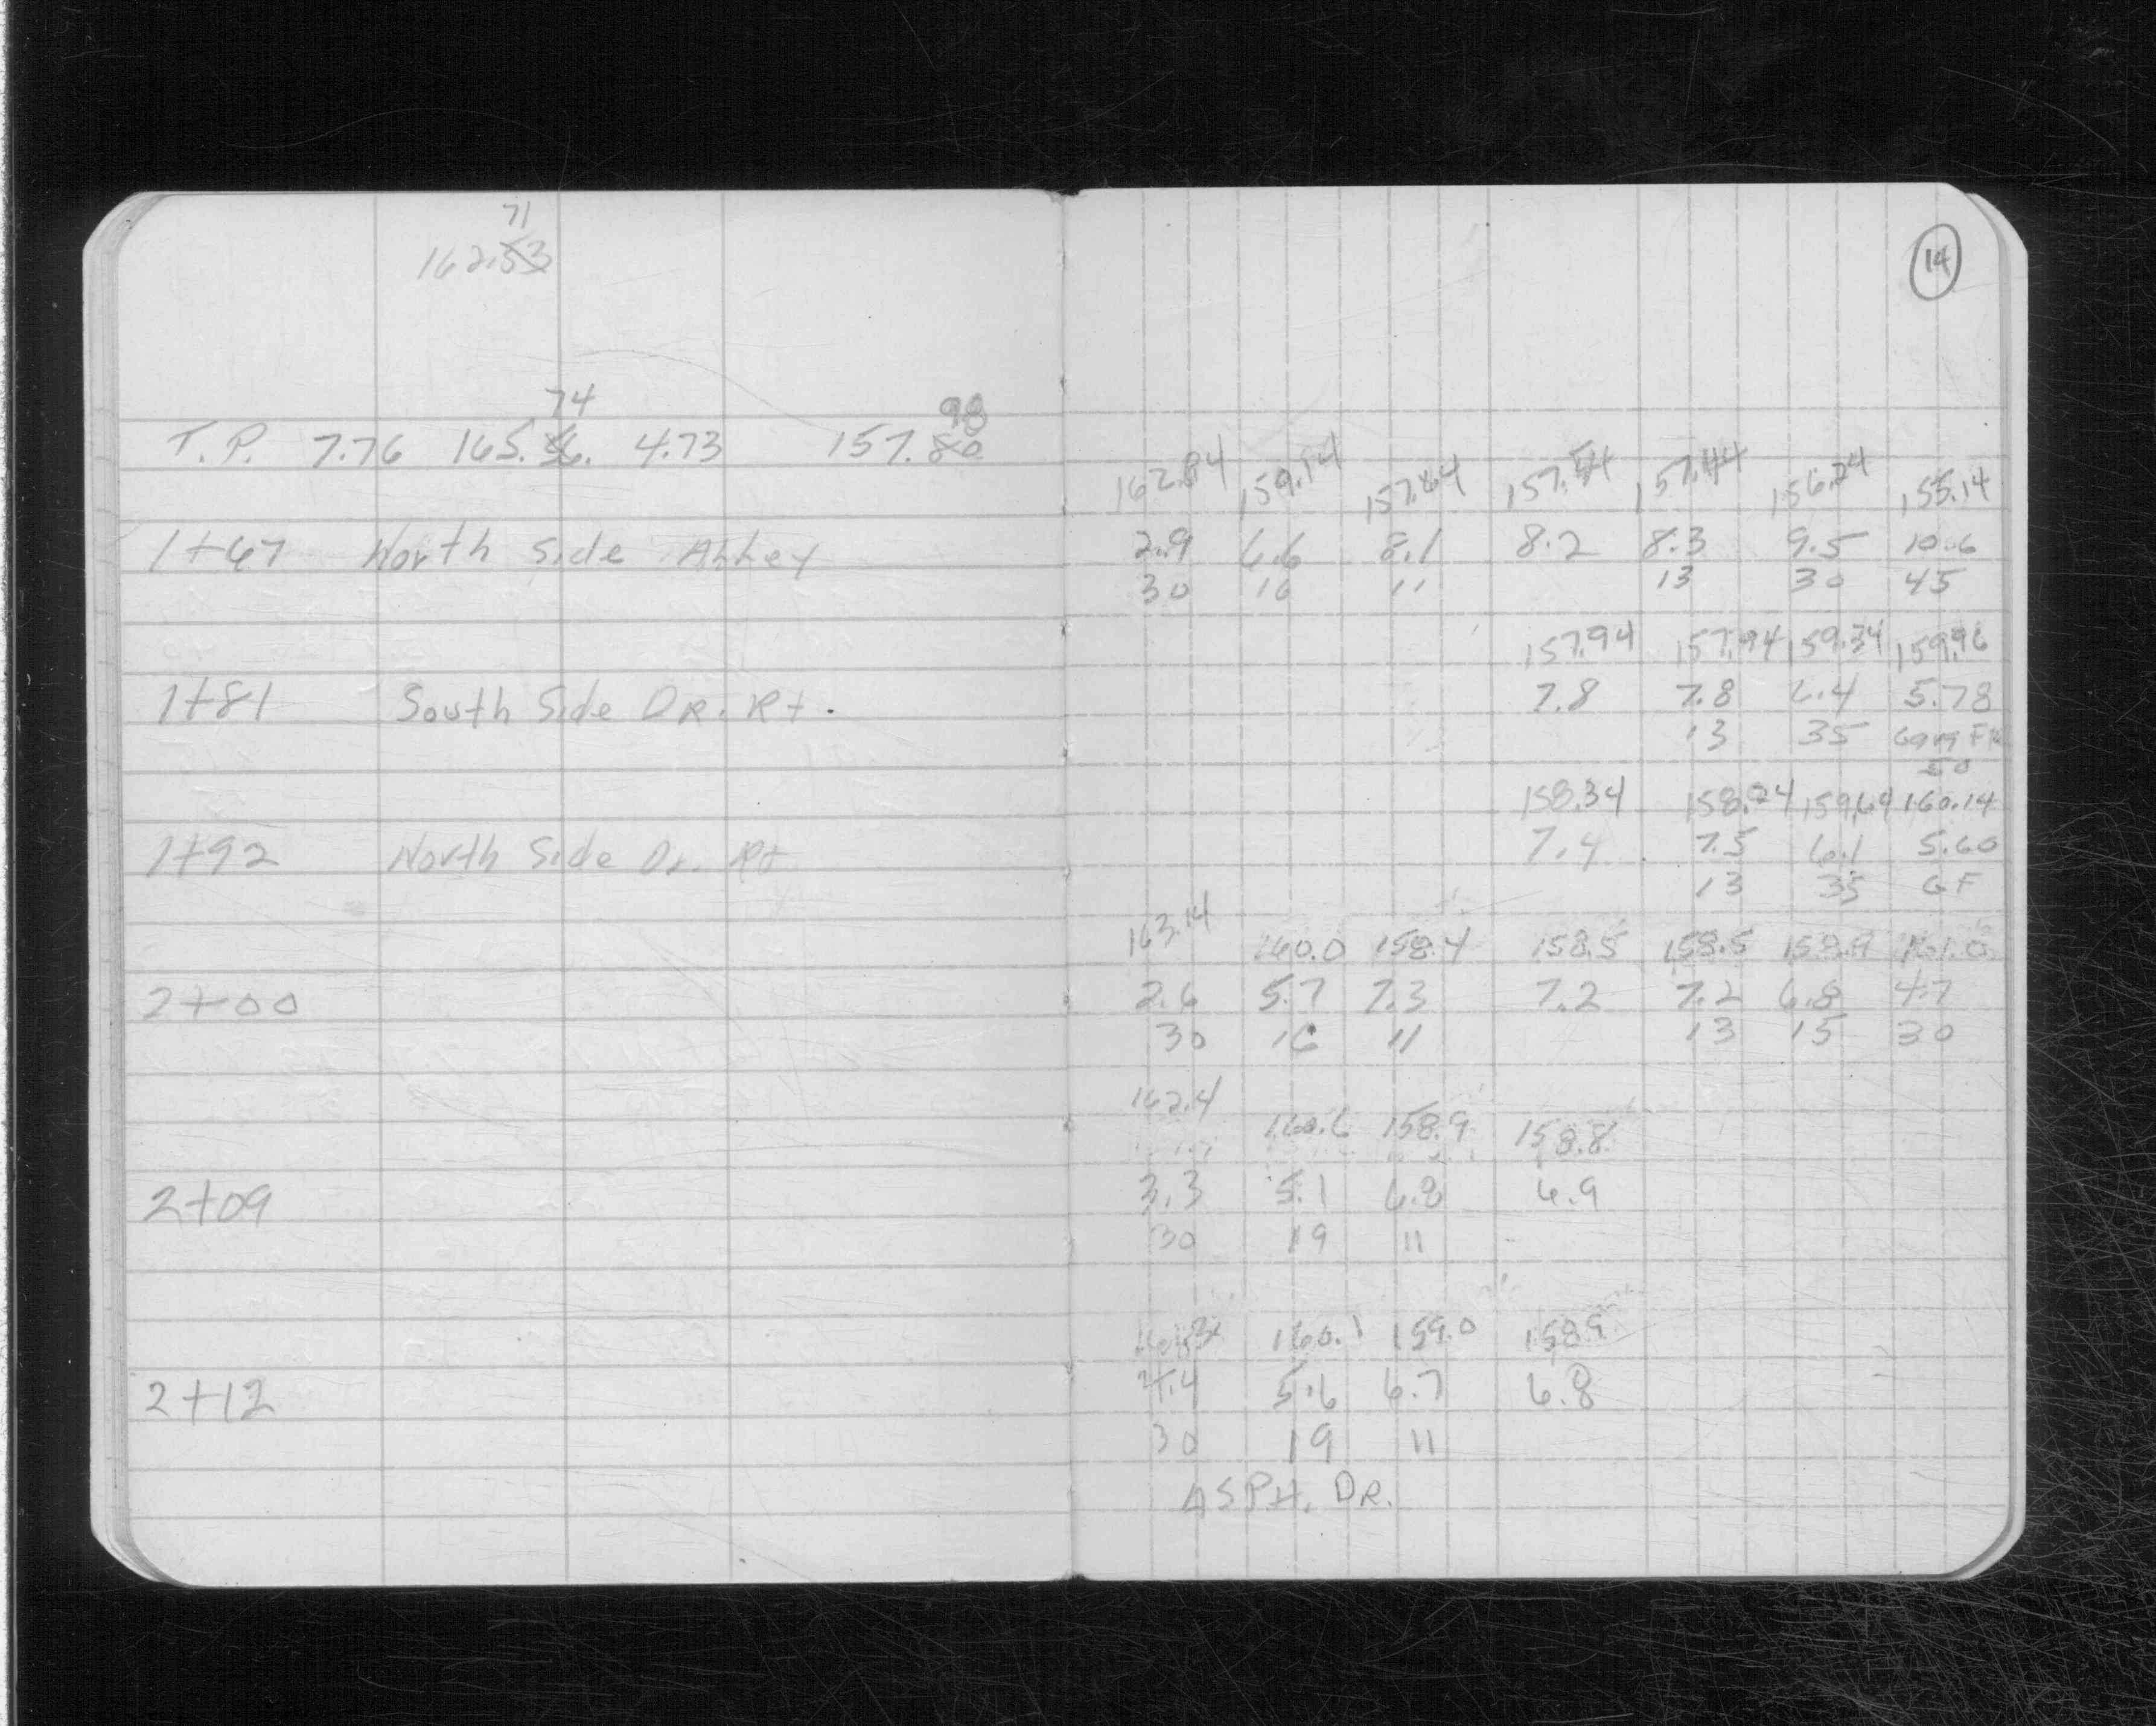 71
162.53
14
74 98
T.P. 7.76 165.56. 4.73 157.80
162.84 159.14 157.64 157.54 157.44 156.24 155.14
1+67 North Side Abbey 2.9 6.6 8.1 8.2 8.3 9.5 10.6
30 16 11 13 30 45
157.94 157.94 159.34 159.96
1+81 South Side DR. Rt. 7.8 7.8 6.4 5.78
13 35 Garg Flr
50
158.34 158.24 159.64 160.14
1+92 North Side Dr. Rt 7.4 7.5 6.1 5.60
13 35 GF
163.14 160.0 158.4 158.5 158.5 158.9 161.0
2+00 2.6 5.7 7.3 7.2 7.2 6.8 4.7
30 16 11 13 15 30
162.4 160.6 158.9 158.8
2+09 3.3 5.1 6.8 6.9
30 19 11
160.1 159.0 158.9
2+12 4.4 5.6 6.7 6.8
30 19 11
ASPH. DR.